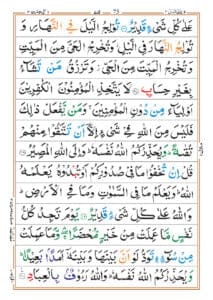 عَلٰى كُلِّ شَىْءٍ قَدِيْرٌ تُوْلِجُ الَّيْلَ فِى النَّهَارِ وَ
تُوْلِجُ النَّهَارَ فِى الَّيْلِ وَتُخْرِجُ الْحَىَّ مِنَ الْمَيِّتِ
وَتُخْرِجُ الْمَيِّتَ مِنَ الْحَىِّ وَتَرْزُقُ مَنْ تَشَآءُ
بِغَيْرِ حِسَابٍ لَا يَتَّخِذِ الْمُؤْمِنُوْنَ الْكٰفِرِيْنَ
اَوْلِيَآءَ مِنْ دُوْنِ الْمُؤْمِنِيْنَ وَمَنْ يَّفْعَلْ ذٰلِكَ
فَلَيْسَ مِنَ اللّٰهِ فِىْ شَىْءٍ اِلَّاۤ اَنْ تَتَّقُوْا مِنْهُمْ
تُقٰىةً وَيُحَذِّرُكُمُ اللّٰهُ نَفْسَهٗ وَاِلَى اللّٰهِ الْمَصِيْرُ
قُلْ اِنْ تُخْفُوْا مَا فِىْ صُدُوْرِكُمْ اَوْ تُبْدُوْهُ يَعْلَمْهُ
اللّٰهُ وَيَعْلَمُ مَا فِى السَّمٰوٰتِ وَمَا فِى الْاَرْضِ
وَاللّٰهُ عَلٰى كُلِّ شَىْءٍ قَدِيْرٌ يَوْمَ تَجِدُ كُلُّ
نَفْسٍ مَّا عَمِلَتْ مِنْ خَيْرٍ مُّحْضَرًا وَّمَا عَمِلَتْ
مِنْ سُوْٓءٍ تَوَدُّ لَوْ اَنَّ بَيْنَهَا وَبَيْنَهٗۤ اَمَدًا بَعِيْدًا
وَيُحَذِّرُكُمُ اللّٰهُ نَفْسَهٗ وَاللّٰهُ رَءُوْفٌۢ بِالْعِبَادِ